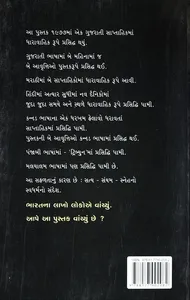 આ પુસ્તક ૧૯૭૭માં એક ગુજરાતી સાપ્તાહિકમાં
ધારાવાહિક રૂપે પ્રસિદ્ધ થયું.
ગુજરાતી ભાષામાં બે મહિનામાં જ
બે આવૃત્તિઓ પુસ્તકરૂપે પ્રસિદ્ધ થઈ.
મરાઠીમાં બે સાપ્તાહિકોમાં ધારાવાહિક રૂપે આવી.
હિંદીમાં અત્યાર સુધીમાં નવ દૈનિકોમાં
જુદા જુદા સમયે અને સ્થળે ધારાવાહિક રૂપે પ્રસિદ્ધિ પામી.
કન્નડ ભાષાના એક
ધારાવાહિક રૂપે પ્રસિદ્ધિ પામી.
પુસ્તકની બે આવૃત્તિઓ કન્નડ ભાષામાં પ્રસિદ્ધ થઈ.
પંજાબી ભાષામાં - 'ટ્રિબ્યુન'માં પ્રસિદ્ધિ પામી.
મલયાલમ ભાષામાં પણ પ્રસિદ્ધિ પામી છે.
આ સફળતાનું કારણ છે : સત્ય - સંયમ - સ્નેહનો
સ્વધર્મનો સંદેશ.
ભારતના લાખો લોકોએ વાંચ્યું.
આપે આ પુસ્તક વાંચ્યું છે ?